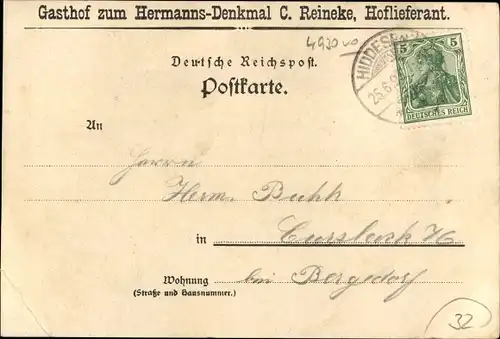 Gasthof zum Hermanns-Denkmal C. Reineke, Hoflieferant.
4930
HIDDESEN
25.6.
5 5
DEUTSCHES REICH
Deutsche Reichspost.
Postkarte.
An
Herrn
Herm. Buhk
in Curslack
Wohnung bei Bergedorf
(Straße und Hausnummer.)
32